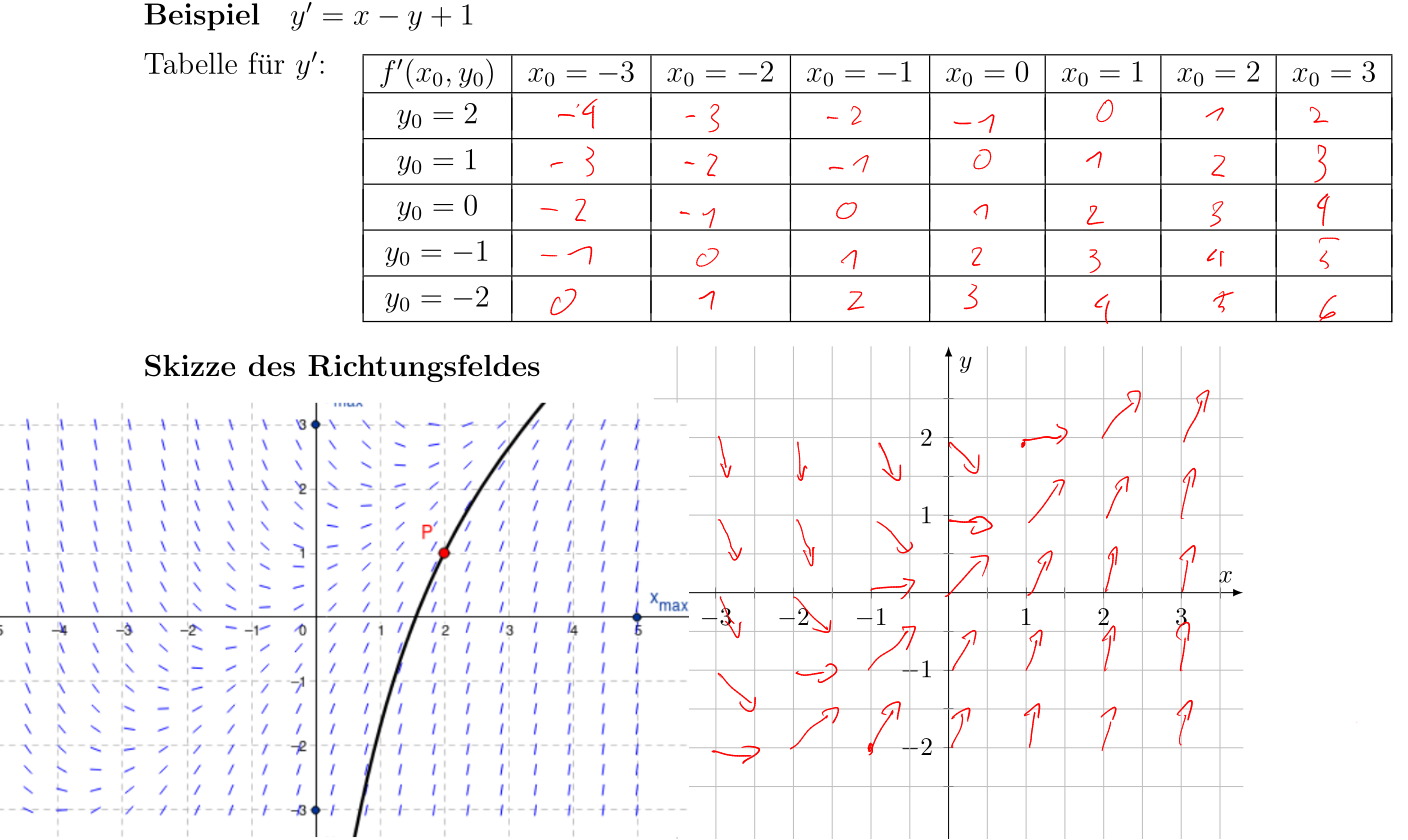 Beispiel y′ = x − y + 1
Tabelle für y′:
f′(x₀, y₀) x₀ = −3 x₀ = −2 x₀ = −1 x₀ = 0 x₀ = 1 x₀ = 2 x₀ = 3
y₀ = 2 -4 -3 -2 -1 0 1 2
y₀ = 1 -3 -2 -1 0 1 2 3
y₀ = 0 -2 -1 0 1 2 3 4
y₀ = −1 -1 0 1 2 3 4 5
y₀ = −2 0 1 2 3 4 5 6
Skizze des Richtungsfeldes
max
3
2
P
1
x max
5 −4 −3 −2 −1 0 1 2 3 4 5
−1
−2
−3
y
2
1
x
−3 −2 −1 1 2 3
−1
−2